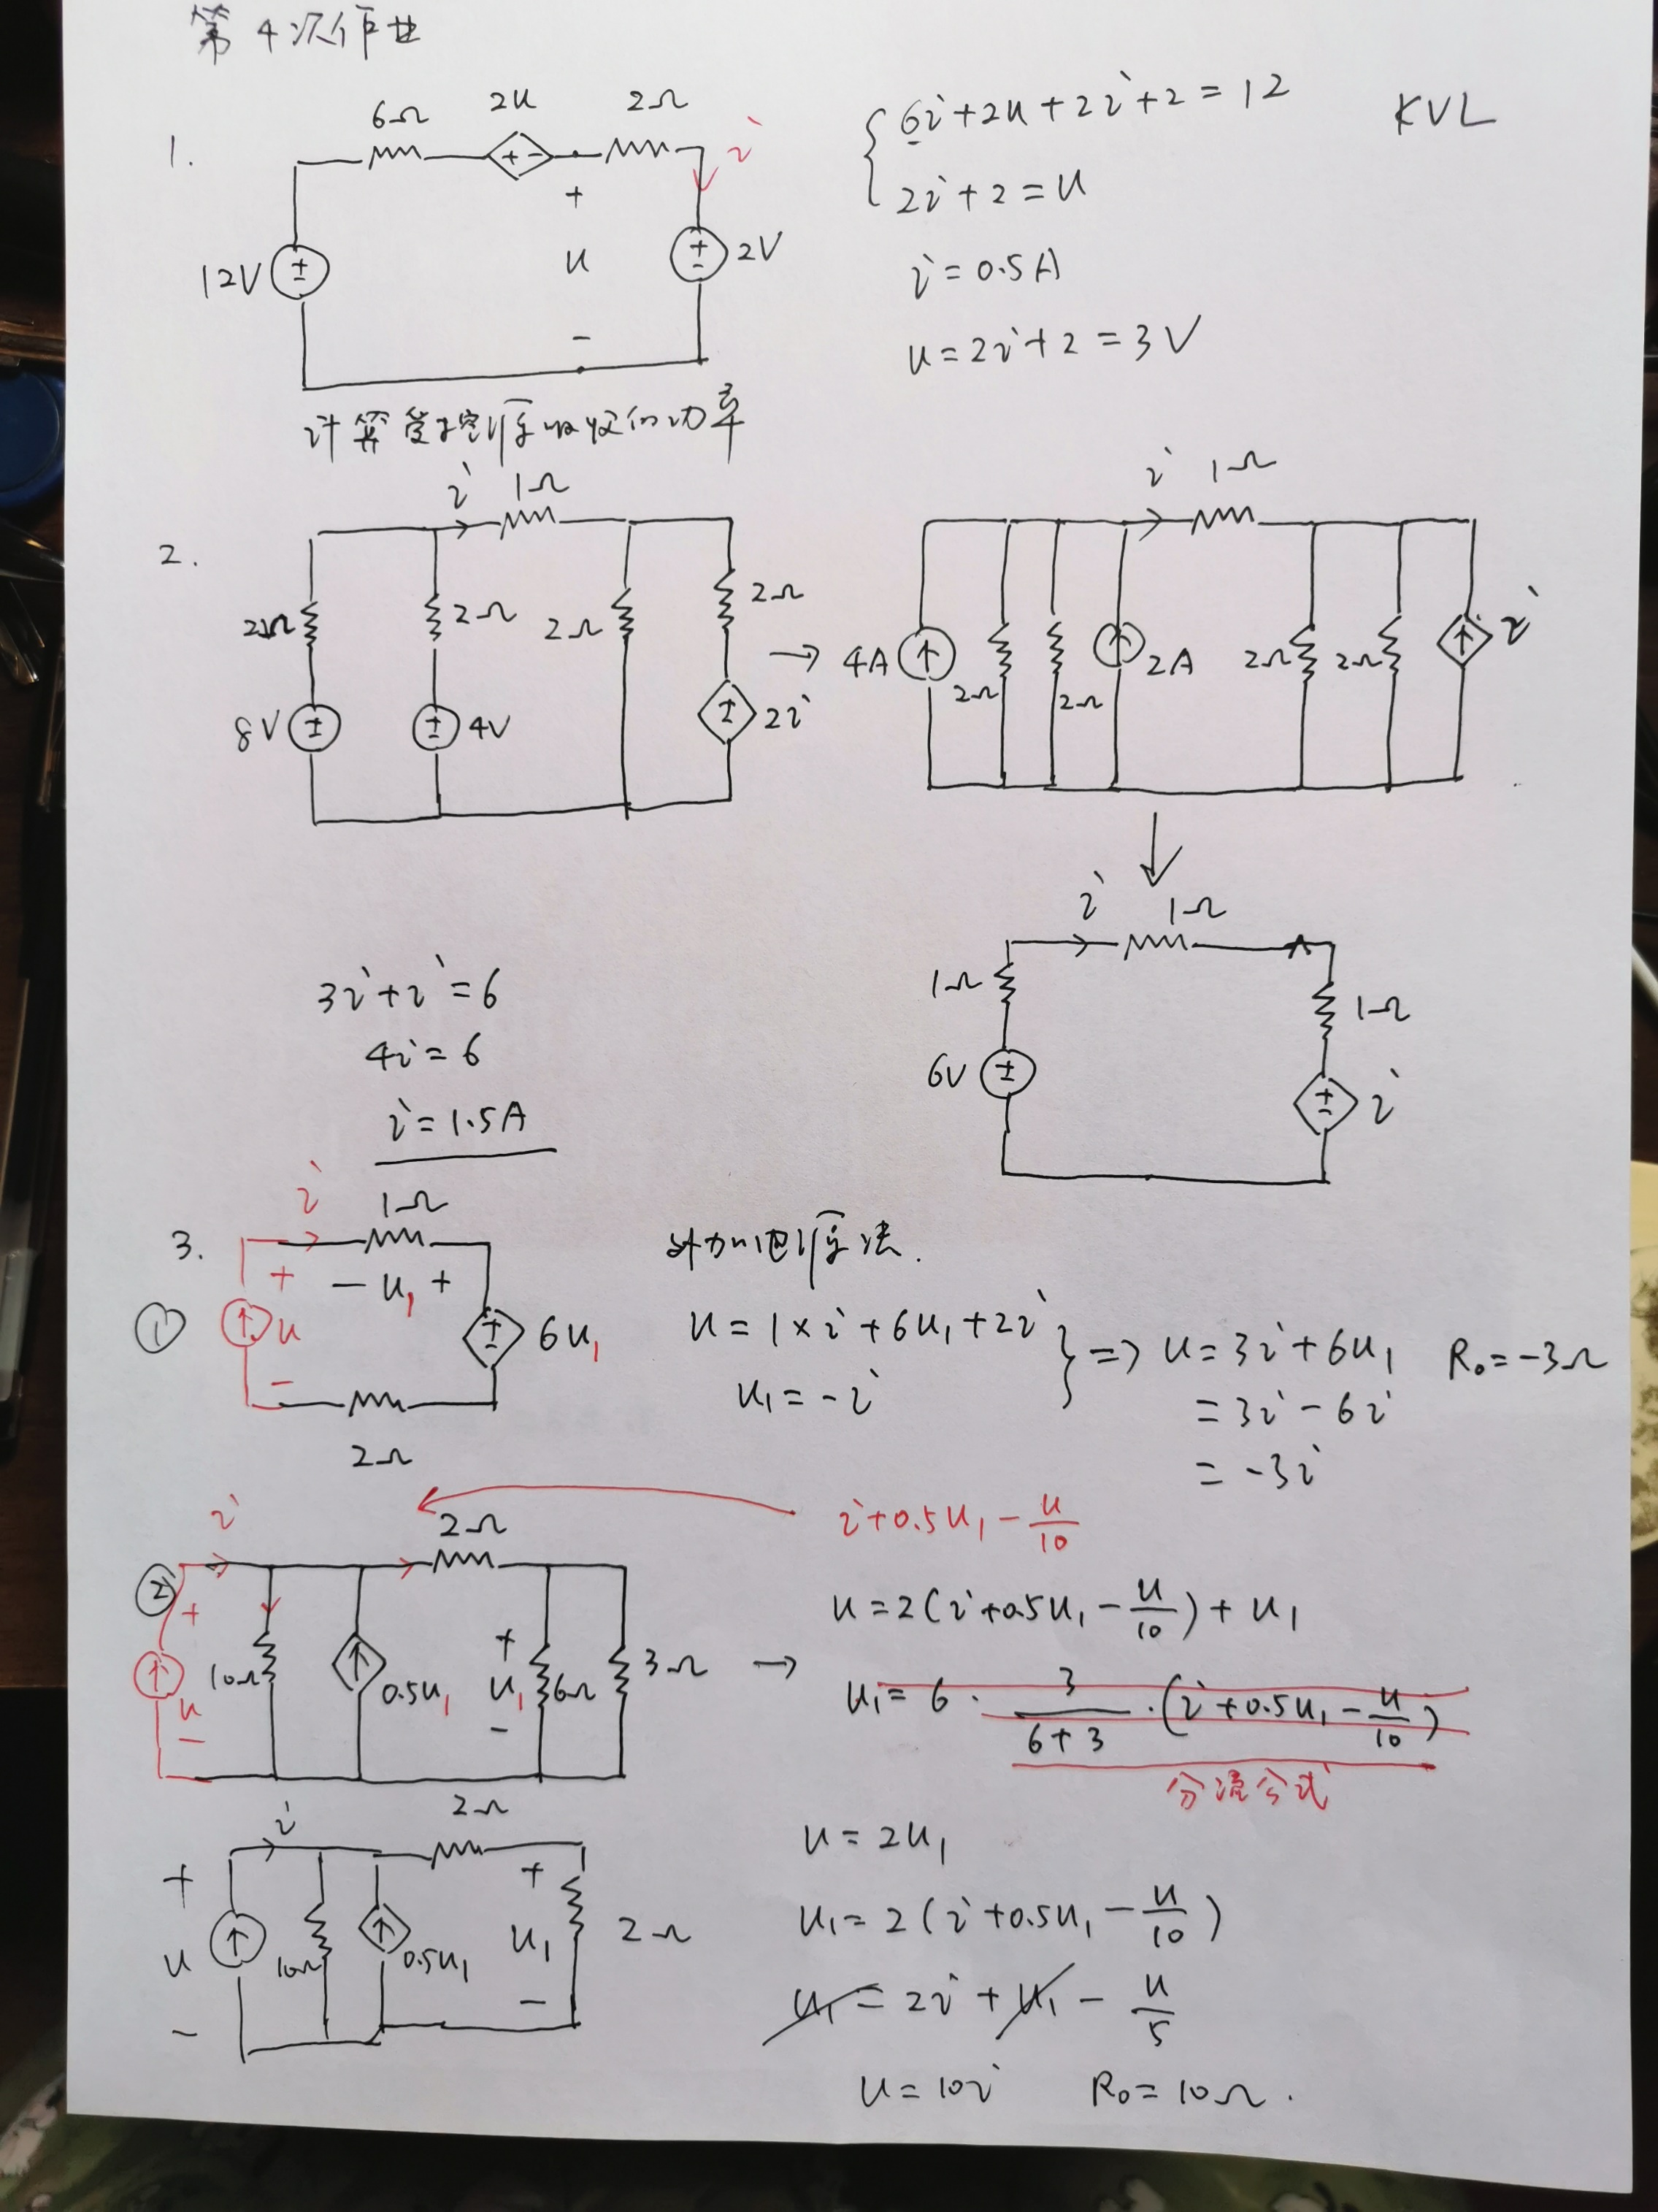 第4次作业
1.
6Ω 2u 2Ω i
+ -
+
12V u 2V
-
{ 6i+2u+2i+2=12 KVL
2i+2=u
i=0.5A
u=2i+2=3V
计算受控源吸收的功率
2.
i 1Ω
2Ω 2Ω 2Ω 2Ω
8V 4V 2i
→
i 1Ω
4A 2Ω 2Ω 2A 2Ω 2Ω i
↓
i 1Ω
1Ω 1Ω
6V i
3i+i=6
4i=6
i=1.5A
3.
①
i 1Ω
+ - u₁ +
u 6u₁
-
2Ω
外加电源法.
u=1×i+6u₁+2i
u₁=-i
} => u=3i+6u₁ R₀=-3Ω
=3i-6i
=-3i
②
i 2Ω
+ +
10Ω 0.5u₁ u₁ 6Ω 3Ω →
u
- -
i+0.5u₁-u/10
u=2(i+0.5u₁-u/10)+u₁
u₁=6·3/(6+3)·(i+0.5u₁-u/10)
分流公式
i 2Ω
+ +
u 10Ω 0.5u₁ u₁ 2Ω
- -
u=2u₁
u₁=2(i+0.5u₁-u/10)
u₁=2i+u₁-u/5
u=10i R₀=10Ω.